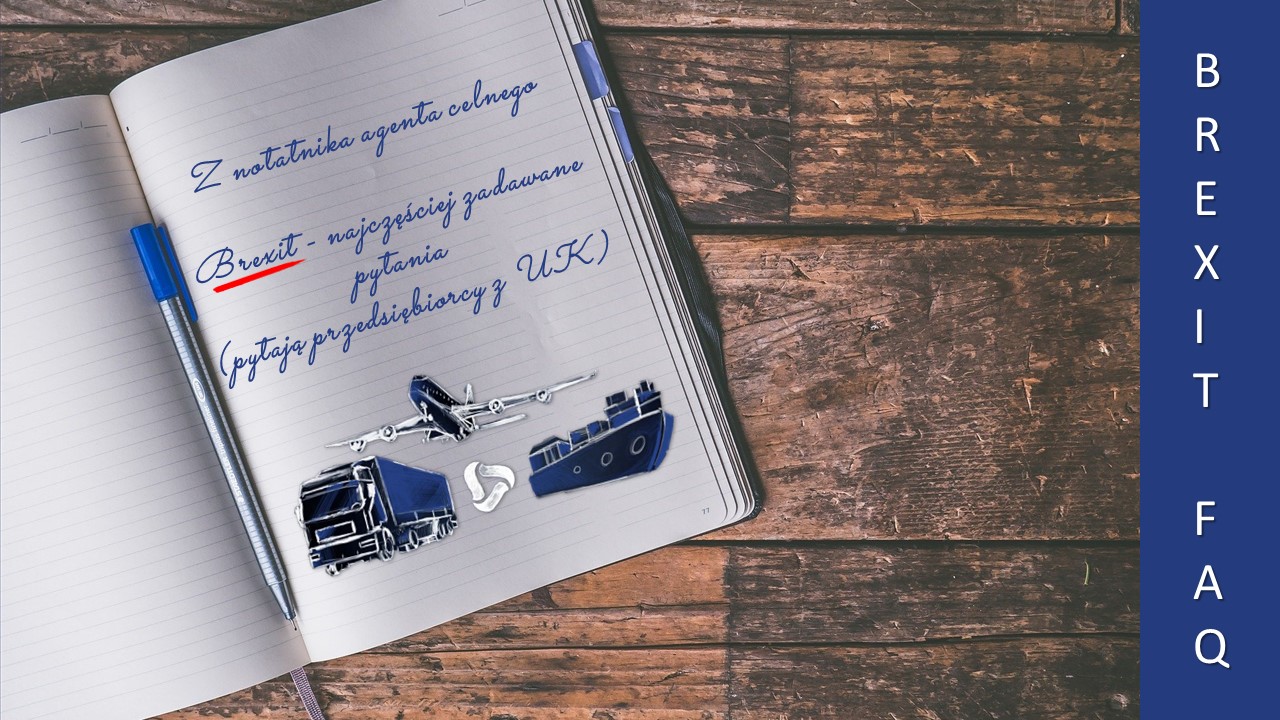 Z notatnika agenta celnego
Brexit - najczęściej zadawane
pytania
(pytają przedsiębiorcy z UK)
77
BREXIT FAQ